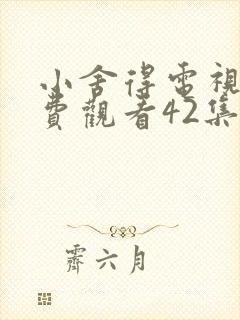 小舍得電視
費觀看42集
霽六月